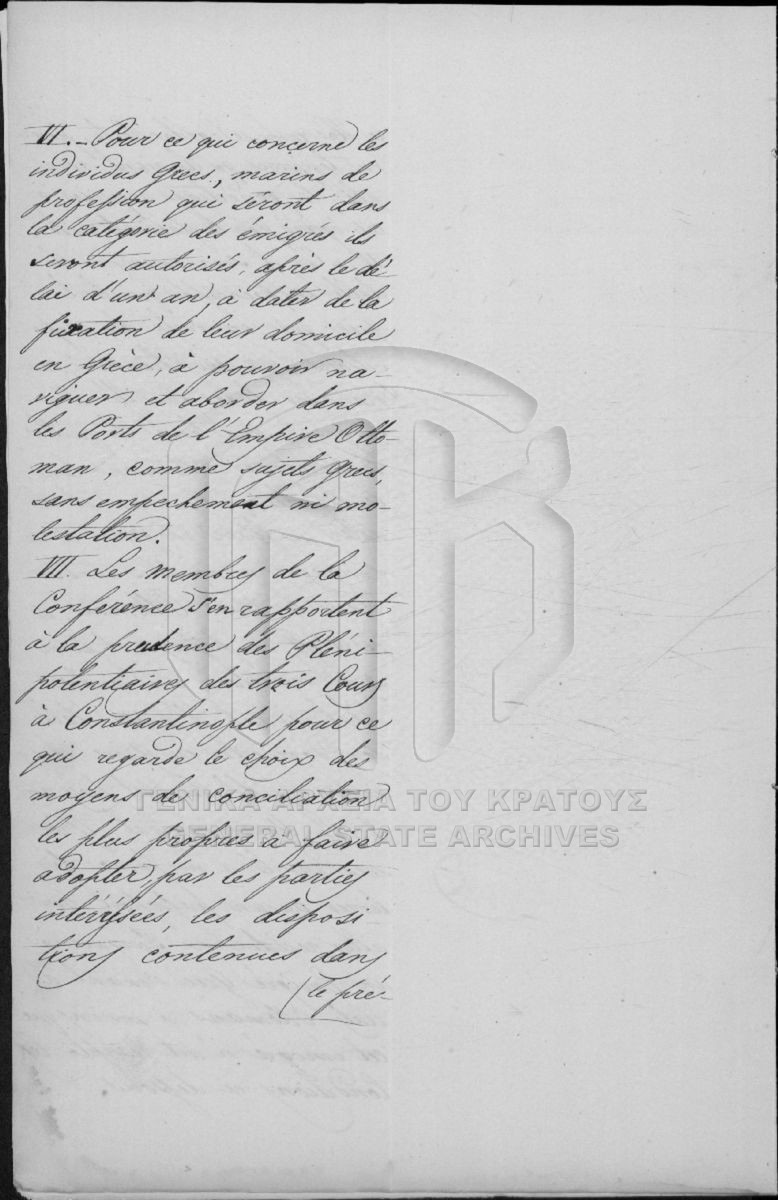 VI. – Pour ce qui concerne les
individus Grecs, marins de
profession qui seront dans
la catégorie des émigrés ils
seront autorisés, après le dé-
lai d'un an, à dater de la
fixation de leur domicile
en Grèce, à pouvoir na-
viguer et aborder dans
les Ports de l'Empire Otto-
man, comme sujets grecs,
sans empechement ni mo-
lestation.
VII. Les membres de la
Conférence s'en rapportent
à la prudence des Pléni-
potentiaires des trois Cours
à Constantinople pour ce
qui regarde le choix des
moyens de conciliation
les plus propres a faire
adopter, par les parties
intérésées, les disposi
tions contenues dans
le pré-
ΓΕΝΙΚΑ ΑΡΧΕΙΑ ΤΟΥ ΚΡΑΤΟΥΣ
GENERAL STATE ARCHIVES